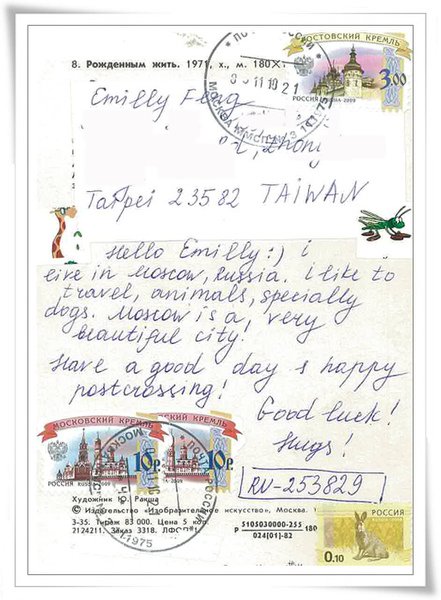 РОСТОВСКИЙ КРЕМЛЬ
3.00
РОССИЯ
8. Рожденным жить. 1971, х., м. 180×
Emilly
Taipei 23582 TAIWAN
Hello Emilly:) i
live in Moscow, Russia. i like to
travel, animals, specially
dogs. Moscow is a very
beautiful city!
Have a good day & happy
postcrossing!
Good luck!
Hugs!
RU-253829
МОСКОВСКИЙ КРЕМЛЬ
10 Р.
РОССИЯ
КРЕМЛЬ
10 Р.
Художник Ю. Ракша
© Издательство «Изобразительное искусство», Москва. 1982
3-35. Тираж 83 000. Цена 5 коп.
2124211. Заказ 3318.
Р 5105030000-255 180
024(01)-82
0.10